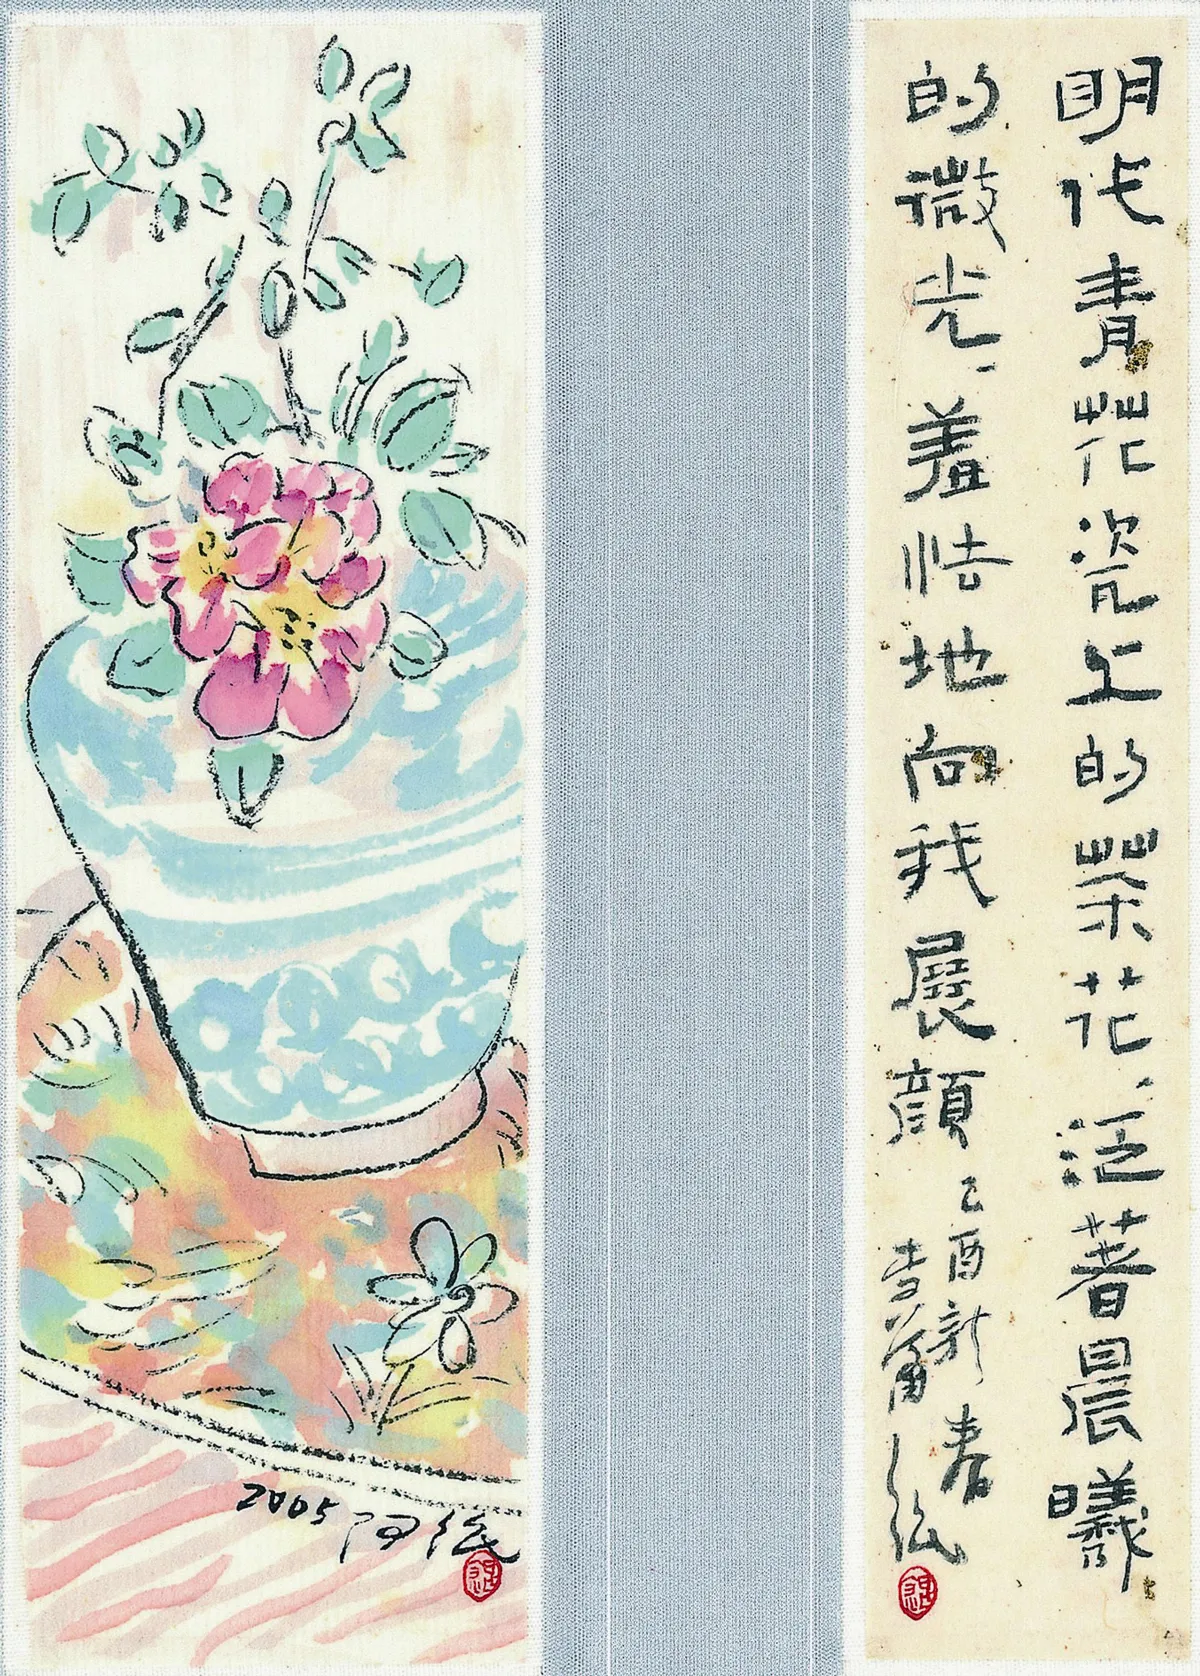 明代青花瓷上的茶花、泛著晨曦
的微光、羞怯地向我展顏
乙酉新春
李蕭錕
2005 阿錕